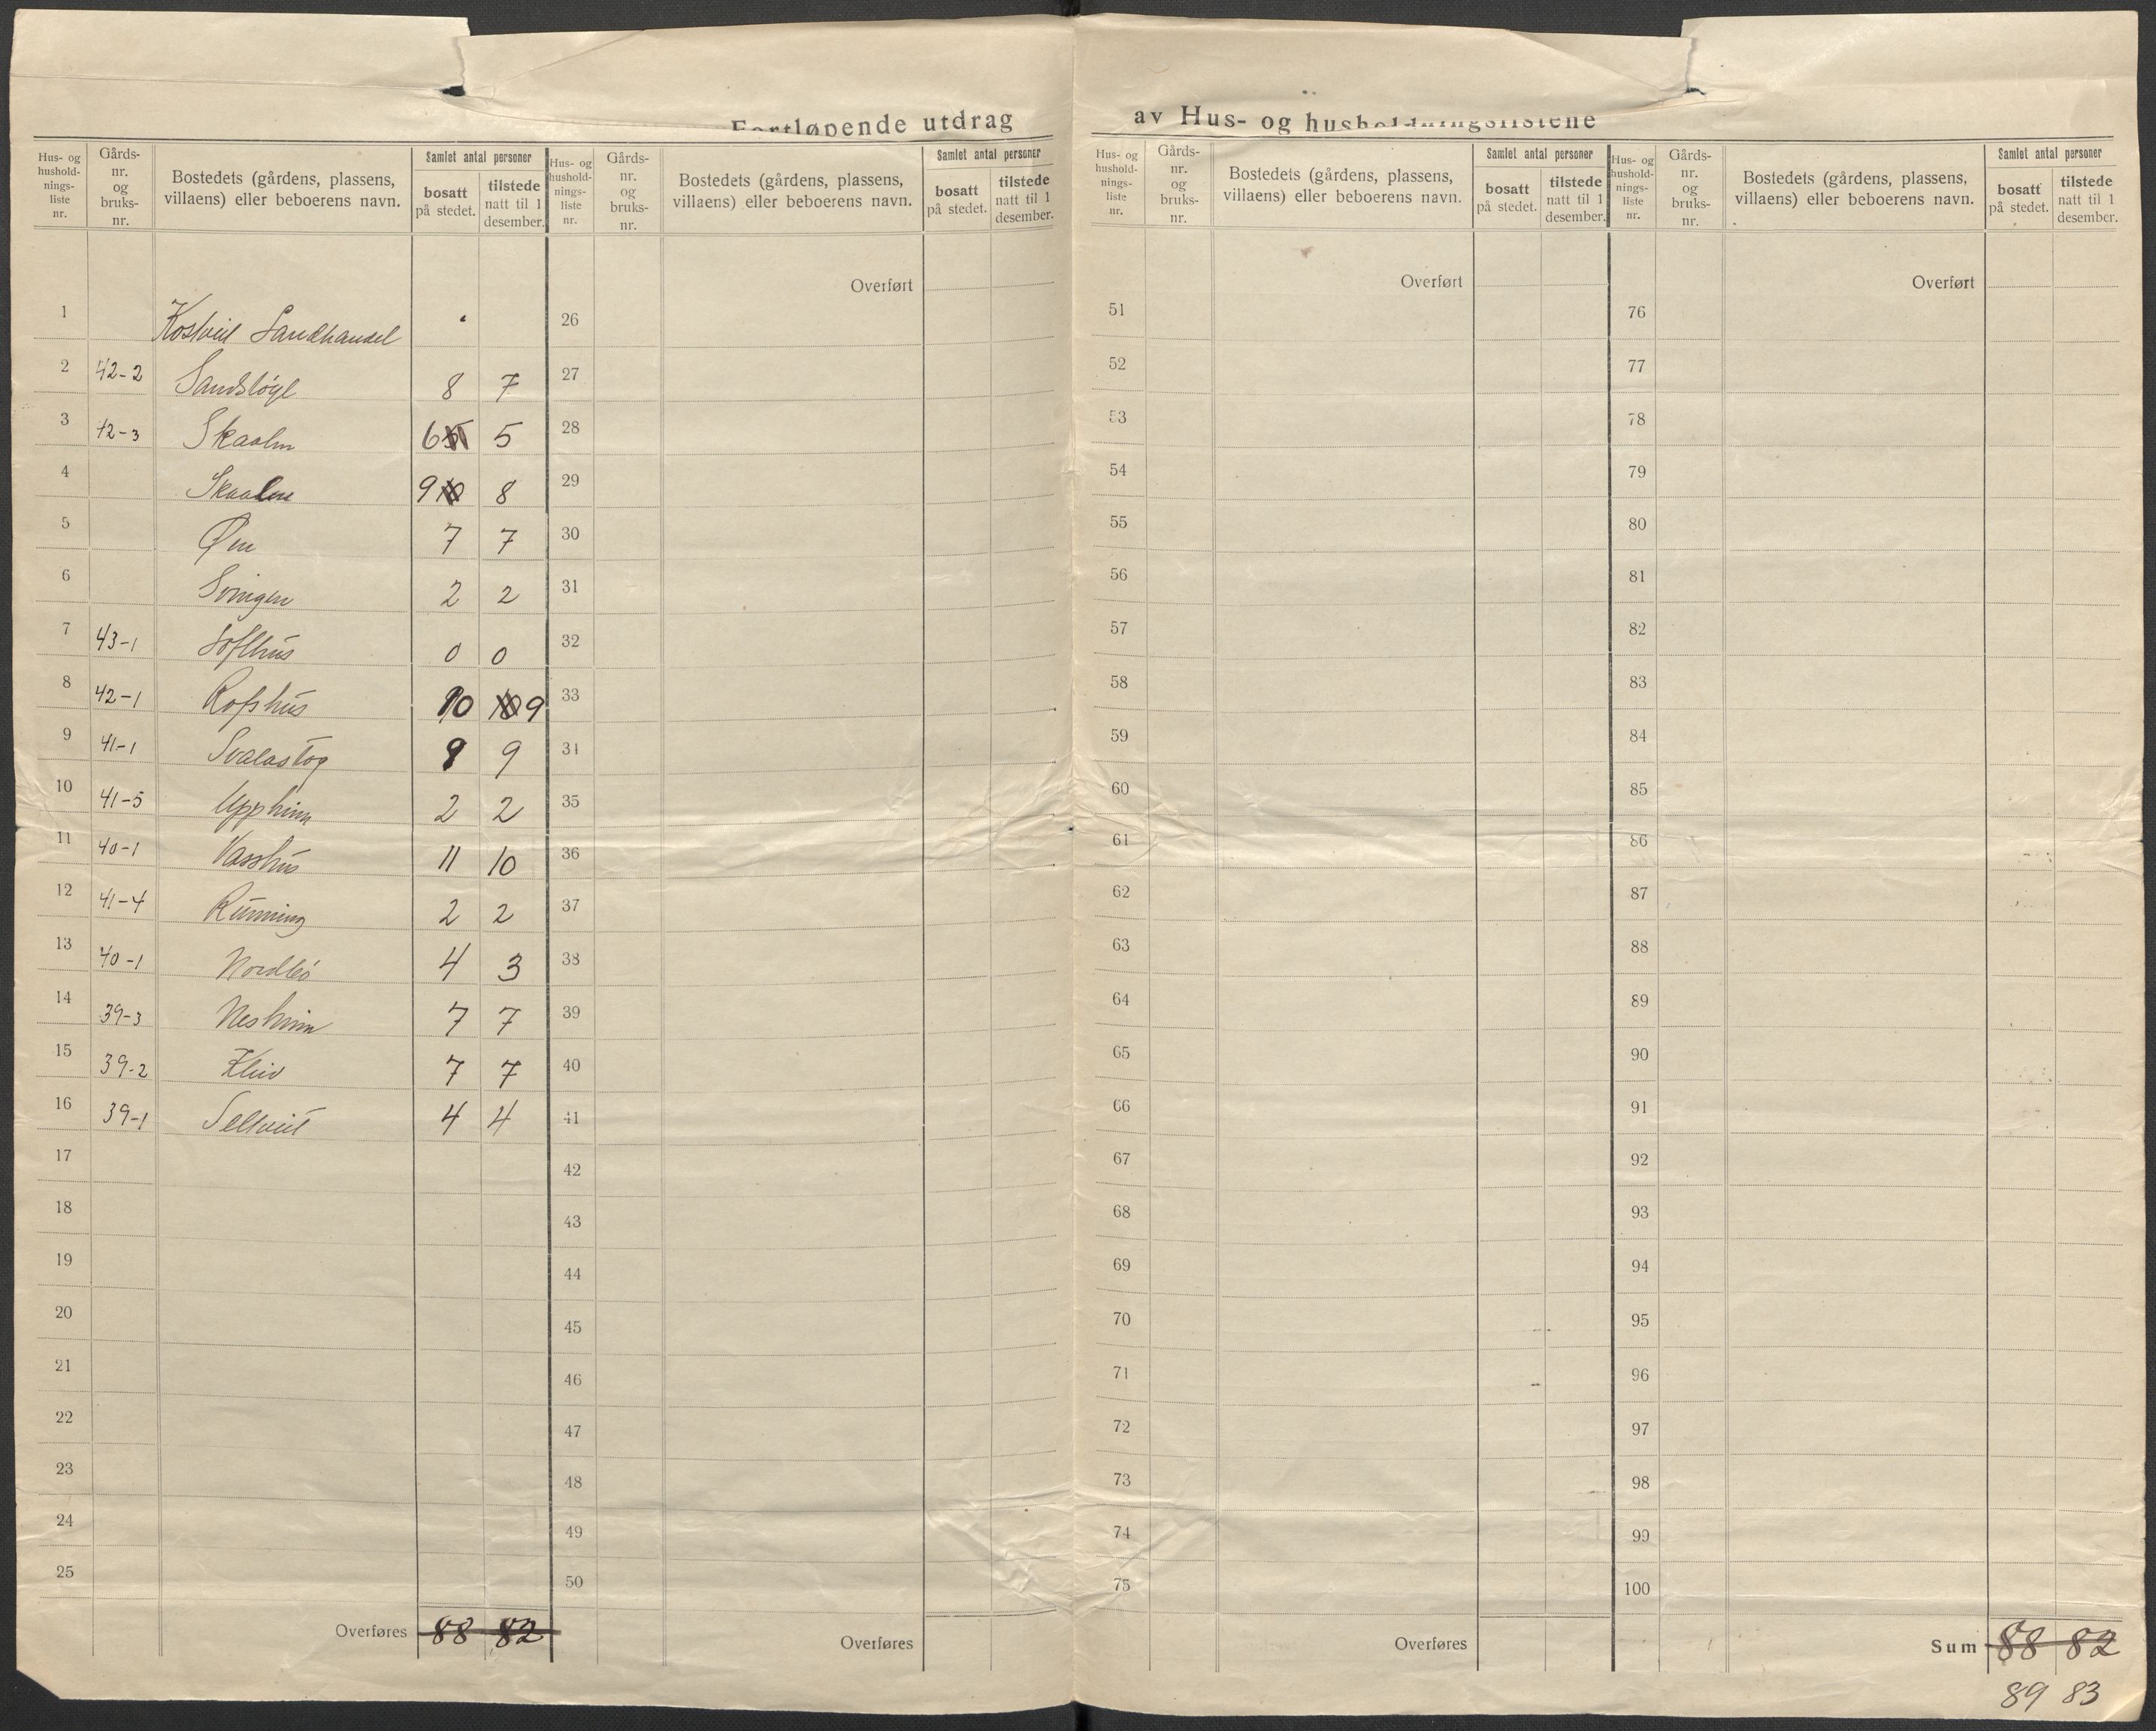 Fortløpende utdrag av Hus- og husholdningslistene
Hus- og hushold-nings-liste nr.
Gårds-nr. og bruks-nr.
Bostedets (gårdens, plassens, villaens) eller beboerens navn.
Samlet antal personer
bosatt på stedet.
tilstede natt til 1 desember.
Hus- og hushold-nings-liste nr.
Gårds-nr. og bruks-nr.
Bostedets (gårdens, plassens, villaens) eller beboerens navn.
Samlet antal personer
bosatt på stedet.
tilstede natt til 1 desember.
Hus- og hushold-nings-liste nr.
Gårds-nr. og bruks-nr.
Bostedets (gårdens, plassens, villaens) eller beboerens navn.
Samlet antal personer
bosatt på stedet.
tilstede natt til 1 desember.
Hus- og hushold-nings-liste nr.
Gårds-nr. og bruks-nr.
Bostedets (gårdens, plassens, villaens) eller beboerens navn.
Samlet antal personer
bosatt på stedet.
tilstede natt til 1 desember.
1 Kostveit Landhandel
2 42-2 Sandsløyt 8 7
3 42-3 Skaalm 6 5
4 Skaalm 9 8
5 Øen 7 7
6 Svingen 2 2
7 43-1 Lofthus 0 0
8 42-1 Rofshus 10 9
9 41-1 Svalastog 9 9
10 41-5 Uppheim 2 2
11 40-1 Vasshus 11 10
12 41-4 Running 2 2
13 40-1 Nordbø 4 3
14 39-3 Nesheim 7 7
15 39-2 Kleiv 7 7
16 39-1 Seltveit 4 4
17
18
19
20
21
22
23
24
25
Overføres 88 82
Overført
26
27
28
29
30
31
32
33
34
35
36
37
38
39
40
41
42
43
44
45
46
47
48
49
50
Overføres
Overført
51
52
53
54
55
56
57
58
59
60
61
62
63
64
65
66
67
68
69
70
71
72
73
74
75
Overføres
Overført
76
77
78
79
80
81
82
83
84
85
86
87
88
89
90
91
92
93
94
95
96
97
98
99
100
Sum 88 82
89 83